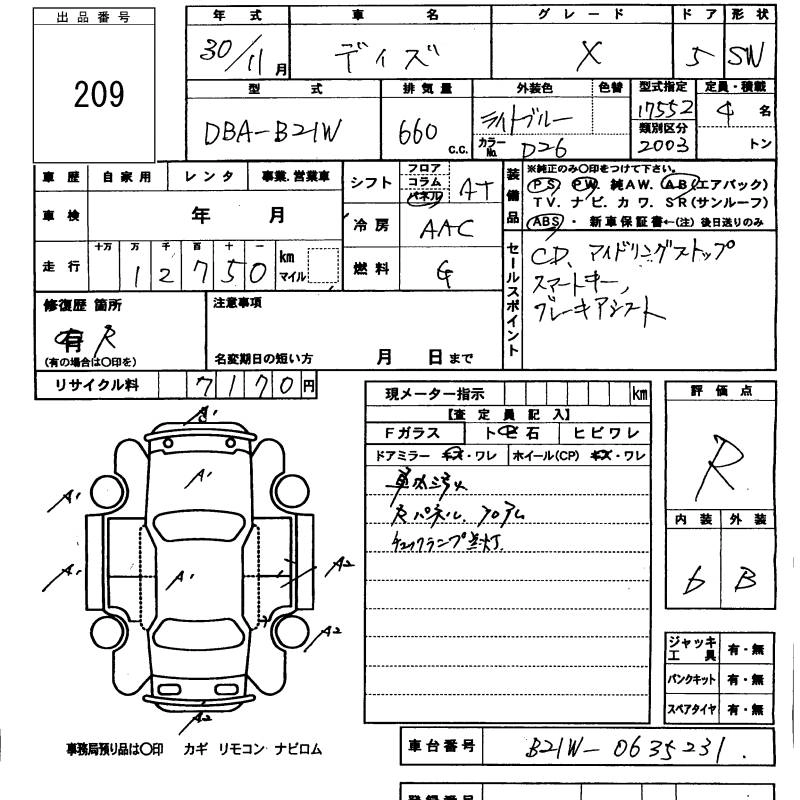 出品番号
209
年式 車名 グレード ドア 形状
30/11月 デイズ X 5 SW
型式 排気量 外装色 色替 型式指定 定員・積載
DBA-B21W 660 c.c. ライトブルー 17552 4名
カラーNo. D26 類別区分 2003 トン
車歴 自家用 レンタ 事業.営業車
車検 年 月
走行 十万 万 千 百 十 一 km マイル
12750
シフト フロア コラム パネル AT
冷房 AAC
燃料 G
装備品
※純正のみ〇印をつけて下さい。
PS PW 純AW. AB(エアバック)
TV. ナビ. カワ. SR(サンルーフ)
ABS ・ 新車保証書←(注) 後日送りのみ
セールスポイント
CD、アイドリングストップ
スマートキー,
ブレーキアシスト
修復歴 箇所
有 R
(有の場合は〇印を)
注意事項
名変期日の短い方 月 日まで
リサイクル料 7170円
現メーター指示 km
【査定員記入】
Fガラス トビ石 ヒビワレ
ドアミラー キズ・ワレ ホイール(CP) キズ・ワレ
Rパネル. フロアム
チェックランプ点灯.
評価点
R
内装 外装
6 B
ジャッキ工具 有・無
パンクキット 有・無
スペアタイヤ 有・無
A'
A'
A'
A'
A'
A2
A2
A2
事務局預り品は〇印 カギ リモコン ナビロム
車台番号 B21W-0635231.
登録番号